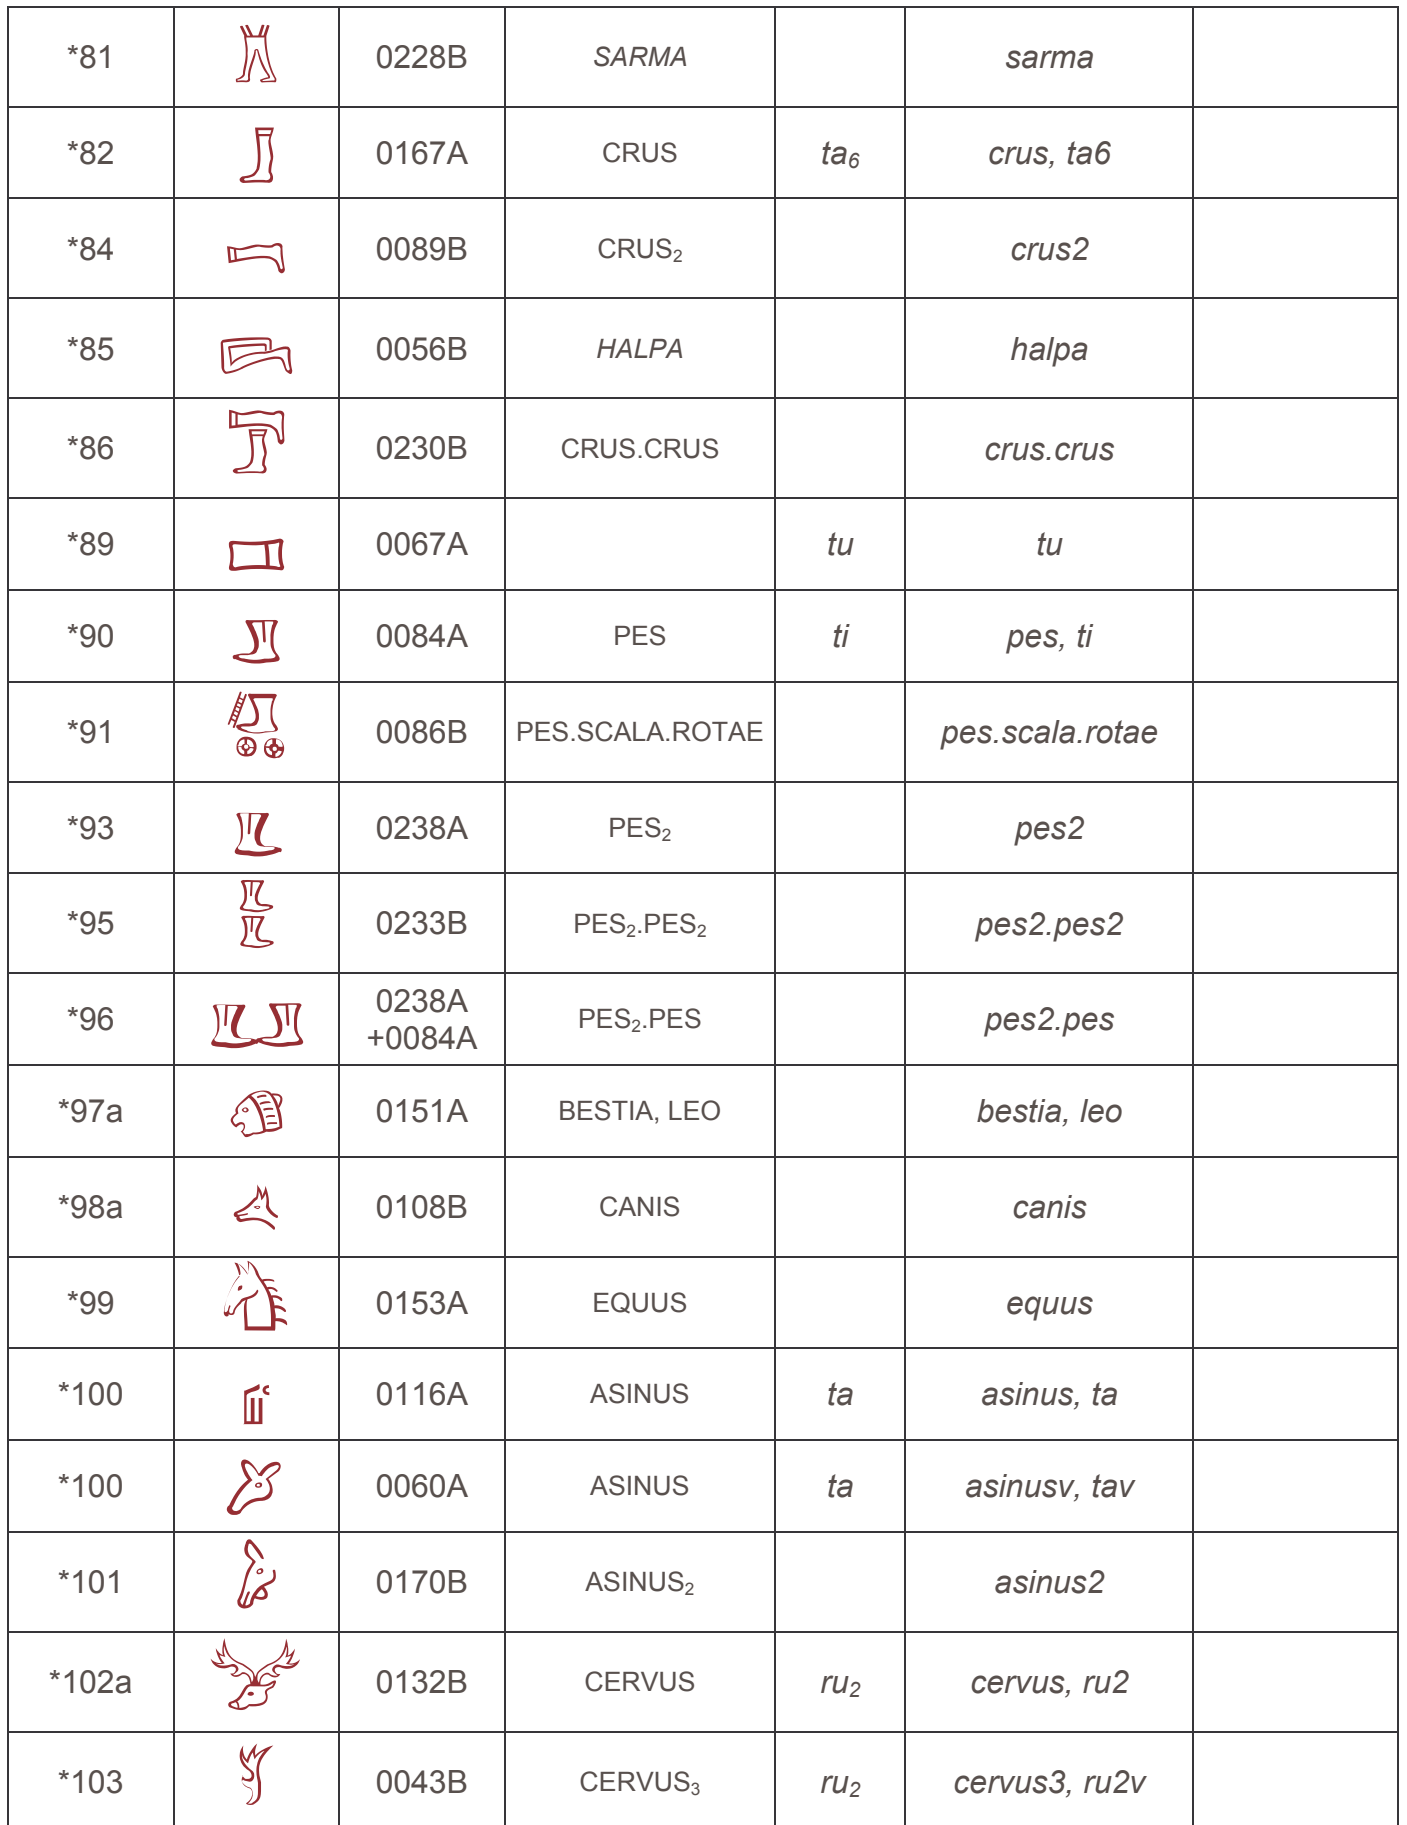 *81 0228B SARMA sarma
*82 0167A CRUS ta₆ crus, ta6
*84 0089B CRUS₂ crus2
*85 0056B HALPA halpa
*86 0230B CRUS.CRUS crus.crus
*89 0067A tu tu
*90 0084A PES ti pes, ti
*91 0086B PES.SCALA.ROTAE pes.scala.rotae
*93 0238A PES₂ pes2
*95 0233B PES₂.PES₂ pes2.pes2
*96 0238A +0084A PES₂.PES pes2.pes
*97a 0151A BESTIA, LEO bestia, leo
*98a 0108B CANIS canis
*99 0153A EQUUS equus
*100 0116A ASINUS ta asinus, ta
*100 0060A ASINUS ta asinusv, tav
*101 0170B ASINUS₂ asinus2
*102a 0132B CERVUS ru₂ cervus, ru2
*103 0043B CERVUS₃ ru₂ cervus3, ru2v